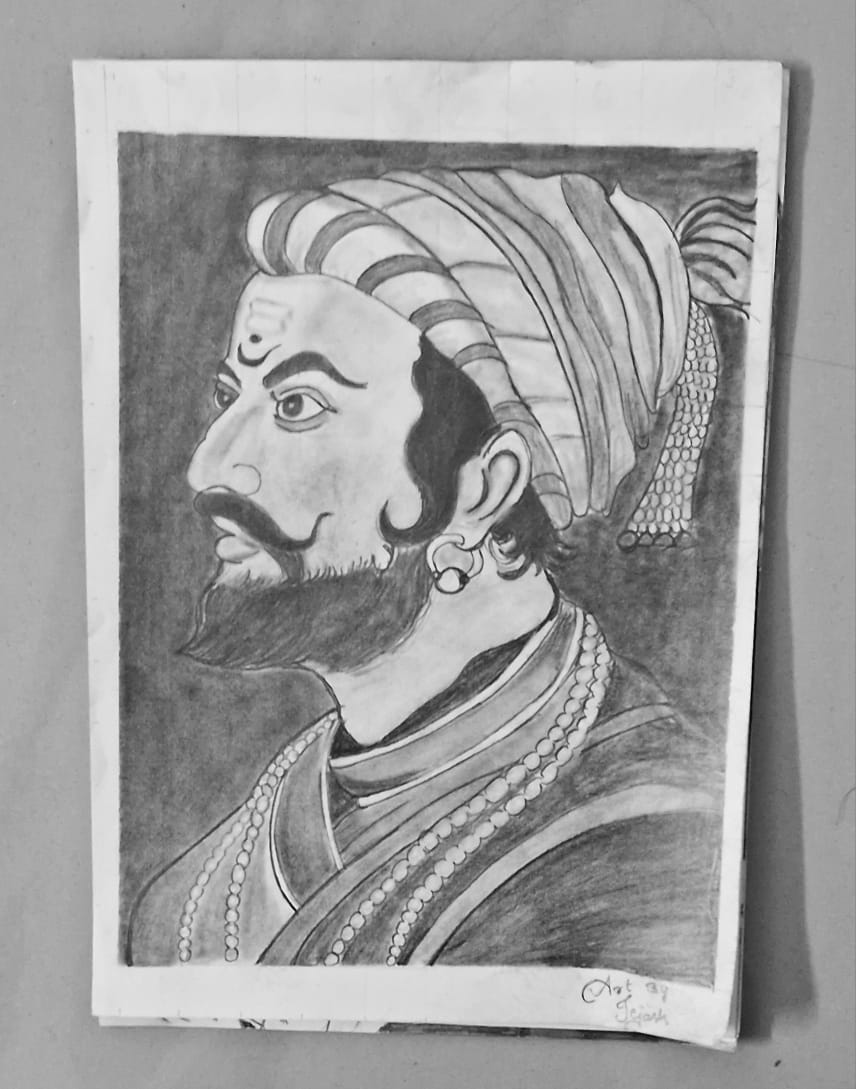 Art By
Tejash